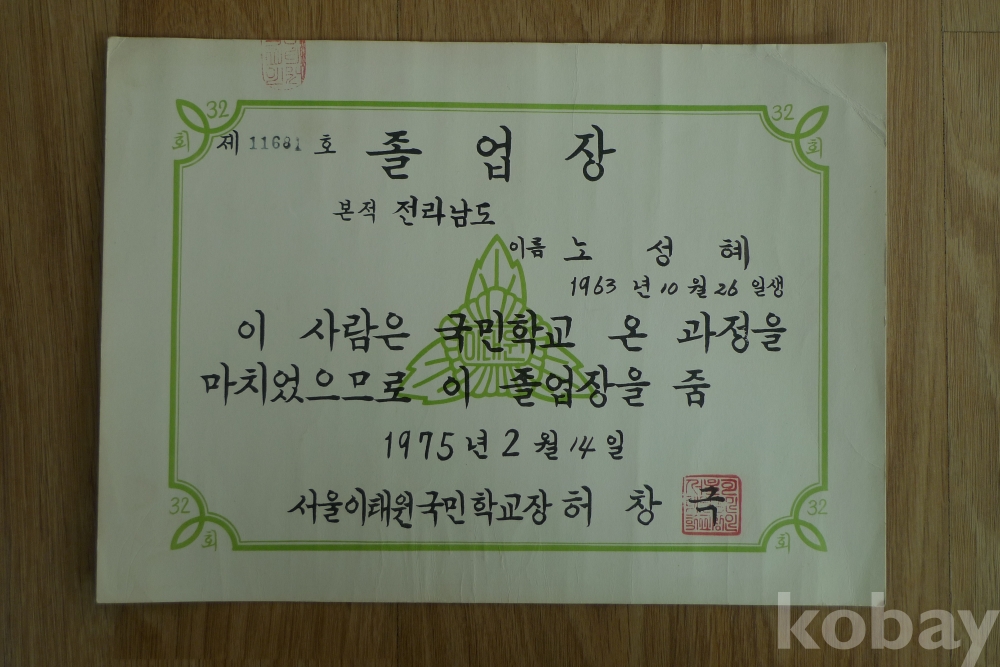 32 32
회 제 11681 호 졸 업 장 회
본적 전라남도
이름 노 성 혜
1963 년 10 월 26 일생
이 사람은 국민학교 온 과정을
마치었으므로 이 졸업장을 줌
1975 년 2 월 14 일
서울이태원국민학교장 허 창 극
32 32
회 회
kobay